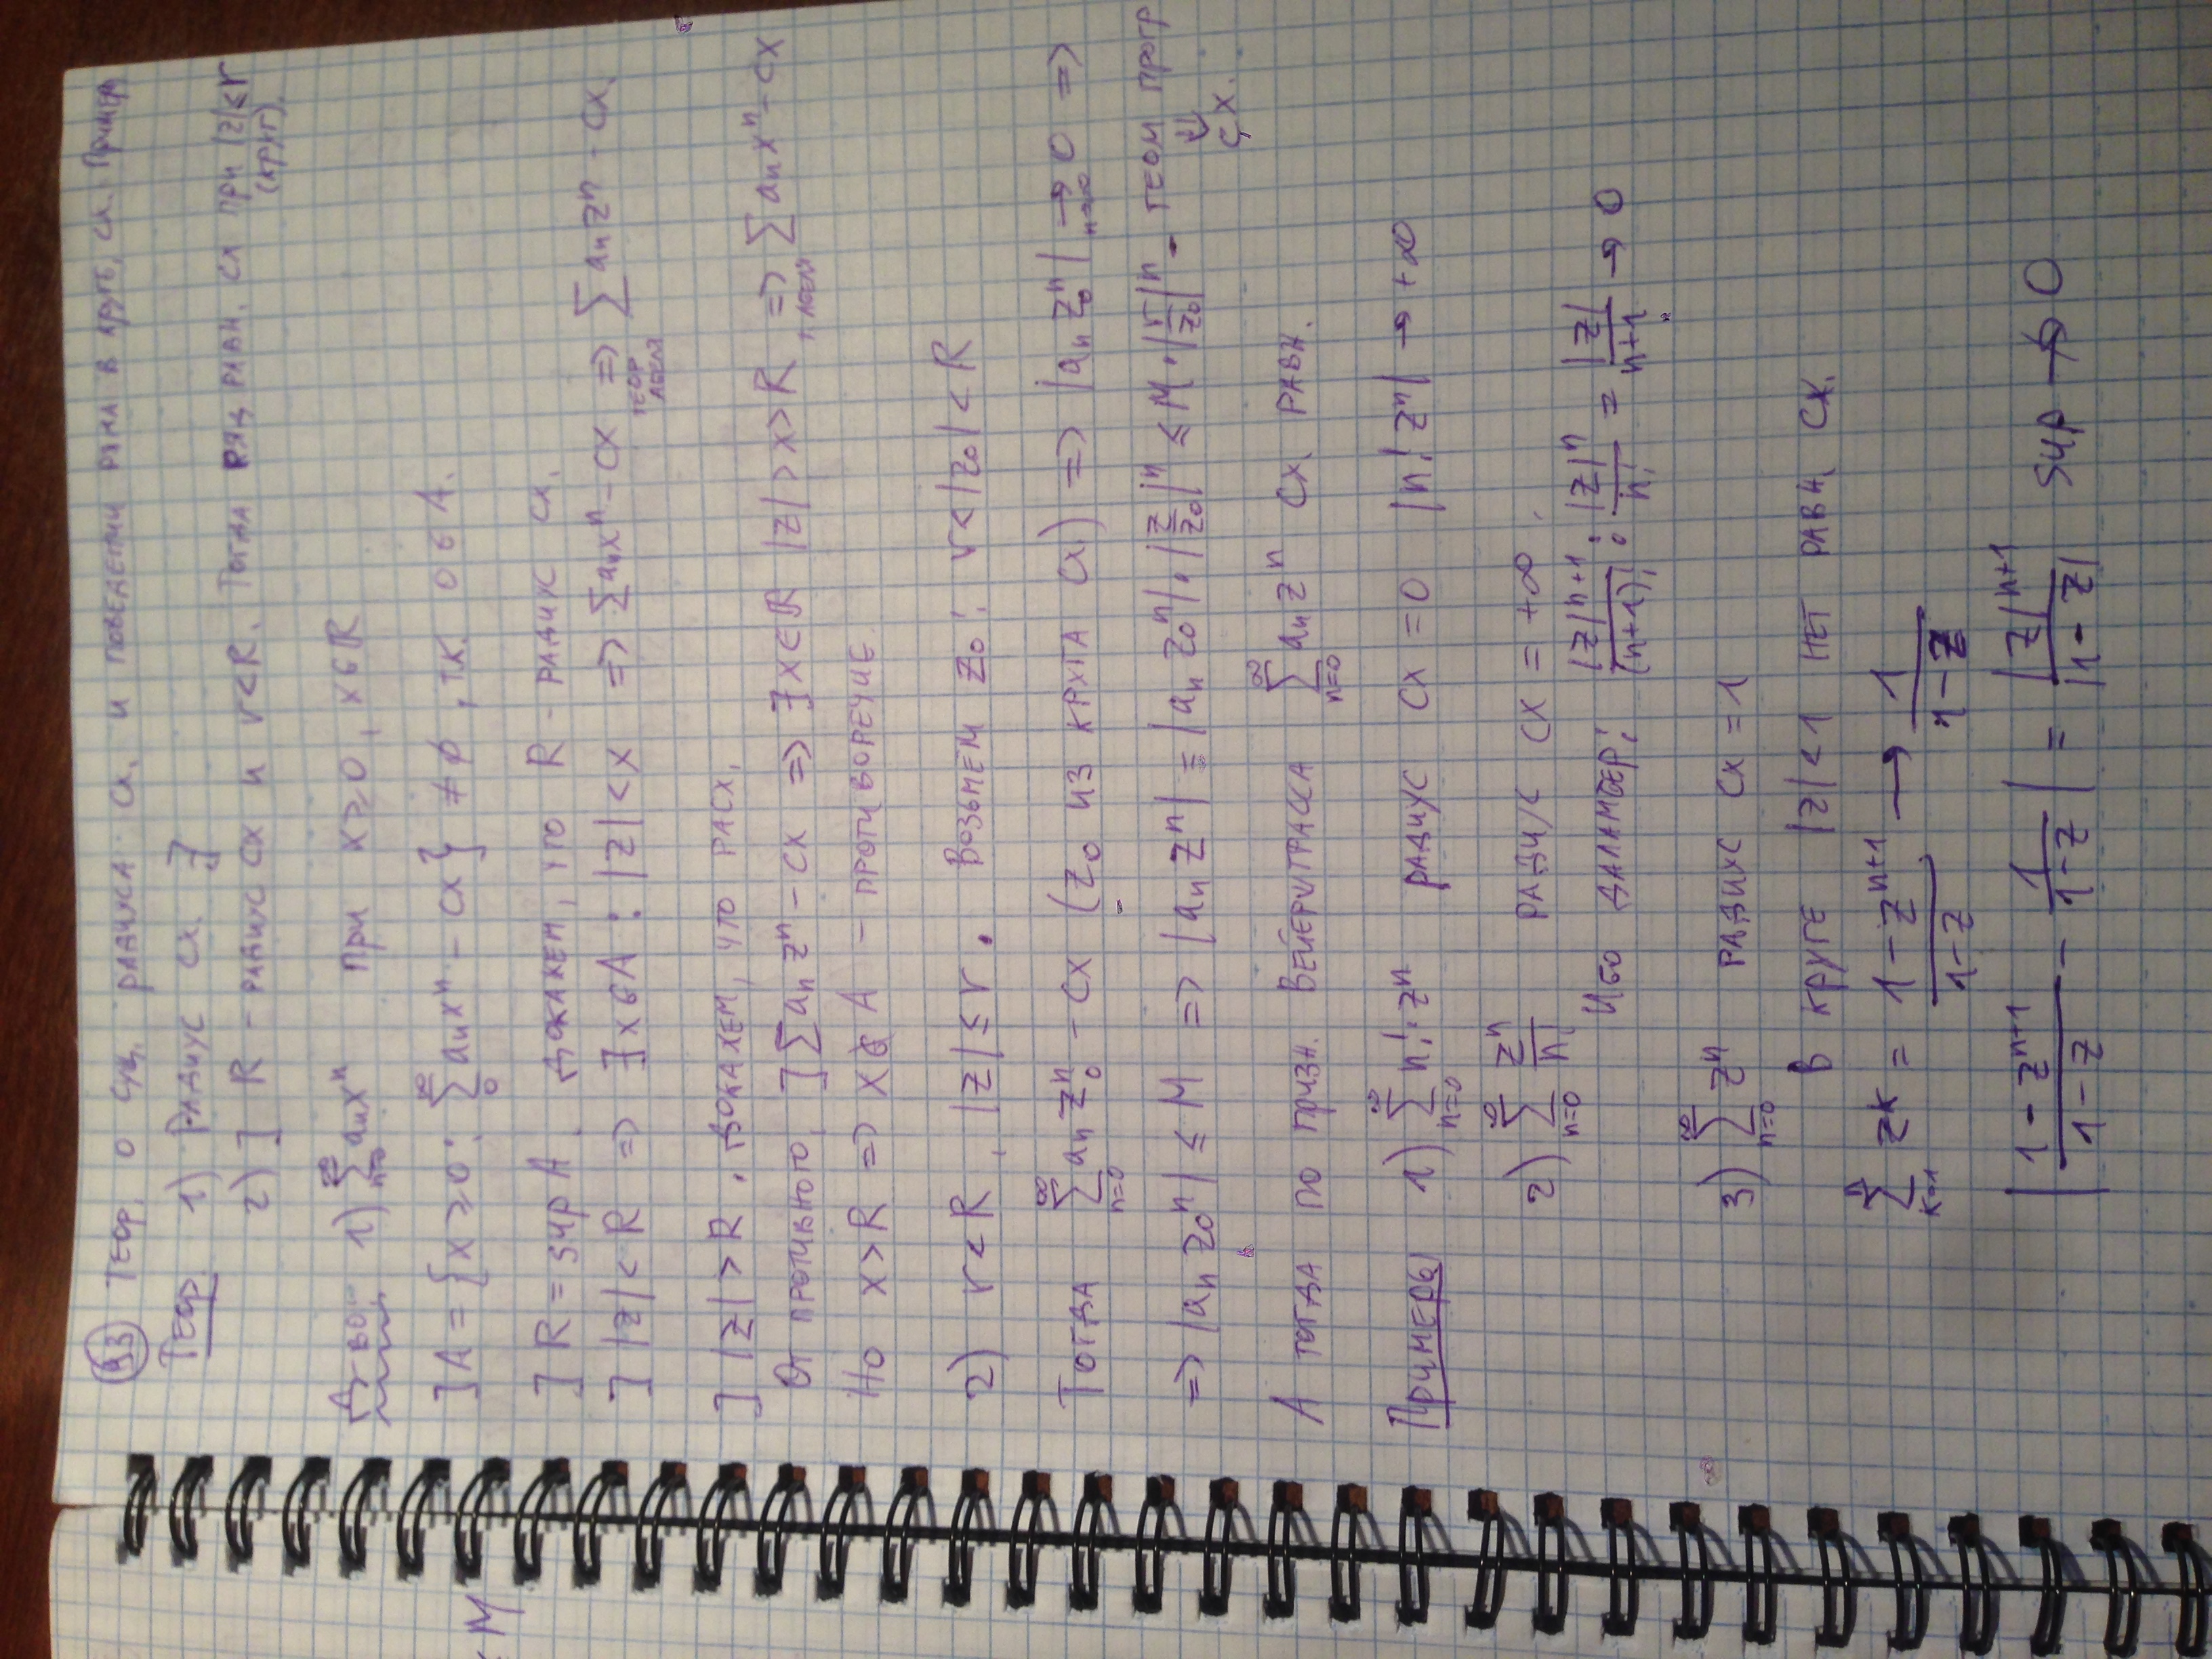 < M
93 Теор. о сущ. радиуса сх. и поведении ряда в круге сх. Примеры
Теор 1) Радиус сх. ∃
2) ] R - радиус сх и r < R. Тогда ряд равн. сх при |z| ≤ r
(круг).
Д-во: 1) ∑_{n=0}^{∞} aₙxⁿ при x ≥ 0, x ∈ ℝ
] A = {x ≥ 0 : ∑_{0}^{∞} aₙxⁿ - сх} ≠ ∅, т.к. 0 ∈ A.
] R = sup A. Докажем, что R - радиус сх.
] |z| < R ⇒ ∃ x ∈ A : |z| < x ⇒ ∑ aₙxⁿ - сх ⇒ ∑ aₙzⁿ - сх.
теор
Абеля
] |z| > R. Докажем, что расх.
От противного, ] ∑ aₙzⁿ - сх ⇒ ∃ x ∈ ℝ |z| > x > R ⇒ ∑ aₙxⁿ - сх
т. Абеля
Но x > R ⇒ x ∉ A - противоречие.
2) r < R, |z| ≤ r. Возьмем z₀ : r < |z₀| < R
Тогда ∑_{n=0}^{∞} aₙz₀ⁿ - сх (z₀ из круга сх) ⇒ |aₙz₀ⁿ| →_{n→∞} 0 ⇒
⇒ |aₙz₀ⁿ| ≤ M ⇒ |aₙzⁿ| = |aₙz₀ⁿ| · |z/z₀|ⁿ ≤ M · |r/z₀|ⁿ - геом прогр
⇓
сх.
А тогда по призн. Вейерштрасса ∑_{n=0}^{∞} aₙzⁿ сх. равн.
Примеры 1) ∑_{n=0}^{∞} n! · zⁿ радиус сх = 0 |n! zⁿ| → +∞
2) ∑_{n=0}^{∞} zⁿ/n! радиус сх = +∞.
Ибо Даламбер: |z|ⁿ⁺¹/(n+1)! : |z|ⁿ/n! = |z|/(n+1) → 0
3) ∑_{n=0}^{∞} zⁿ радиус сх = 1
В круге |z| < 1 нет равн. сх.
∑_{k=1}^{n} zᵏ = (1 - zⁿ⁺¹)/(1 - z) → 1/(1 - z)
|(1 - zⁿ⁺¹)/(1 - z) - 1/(1 - z)| = |z|ⁿ⁺¹/|1 - z| sup ↛ 0